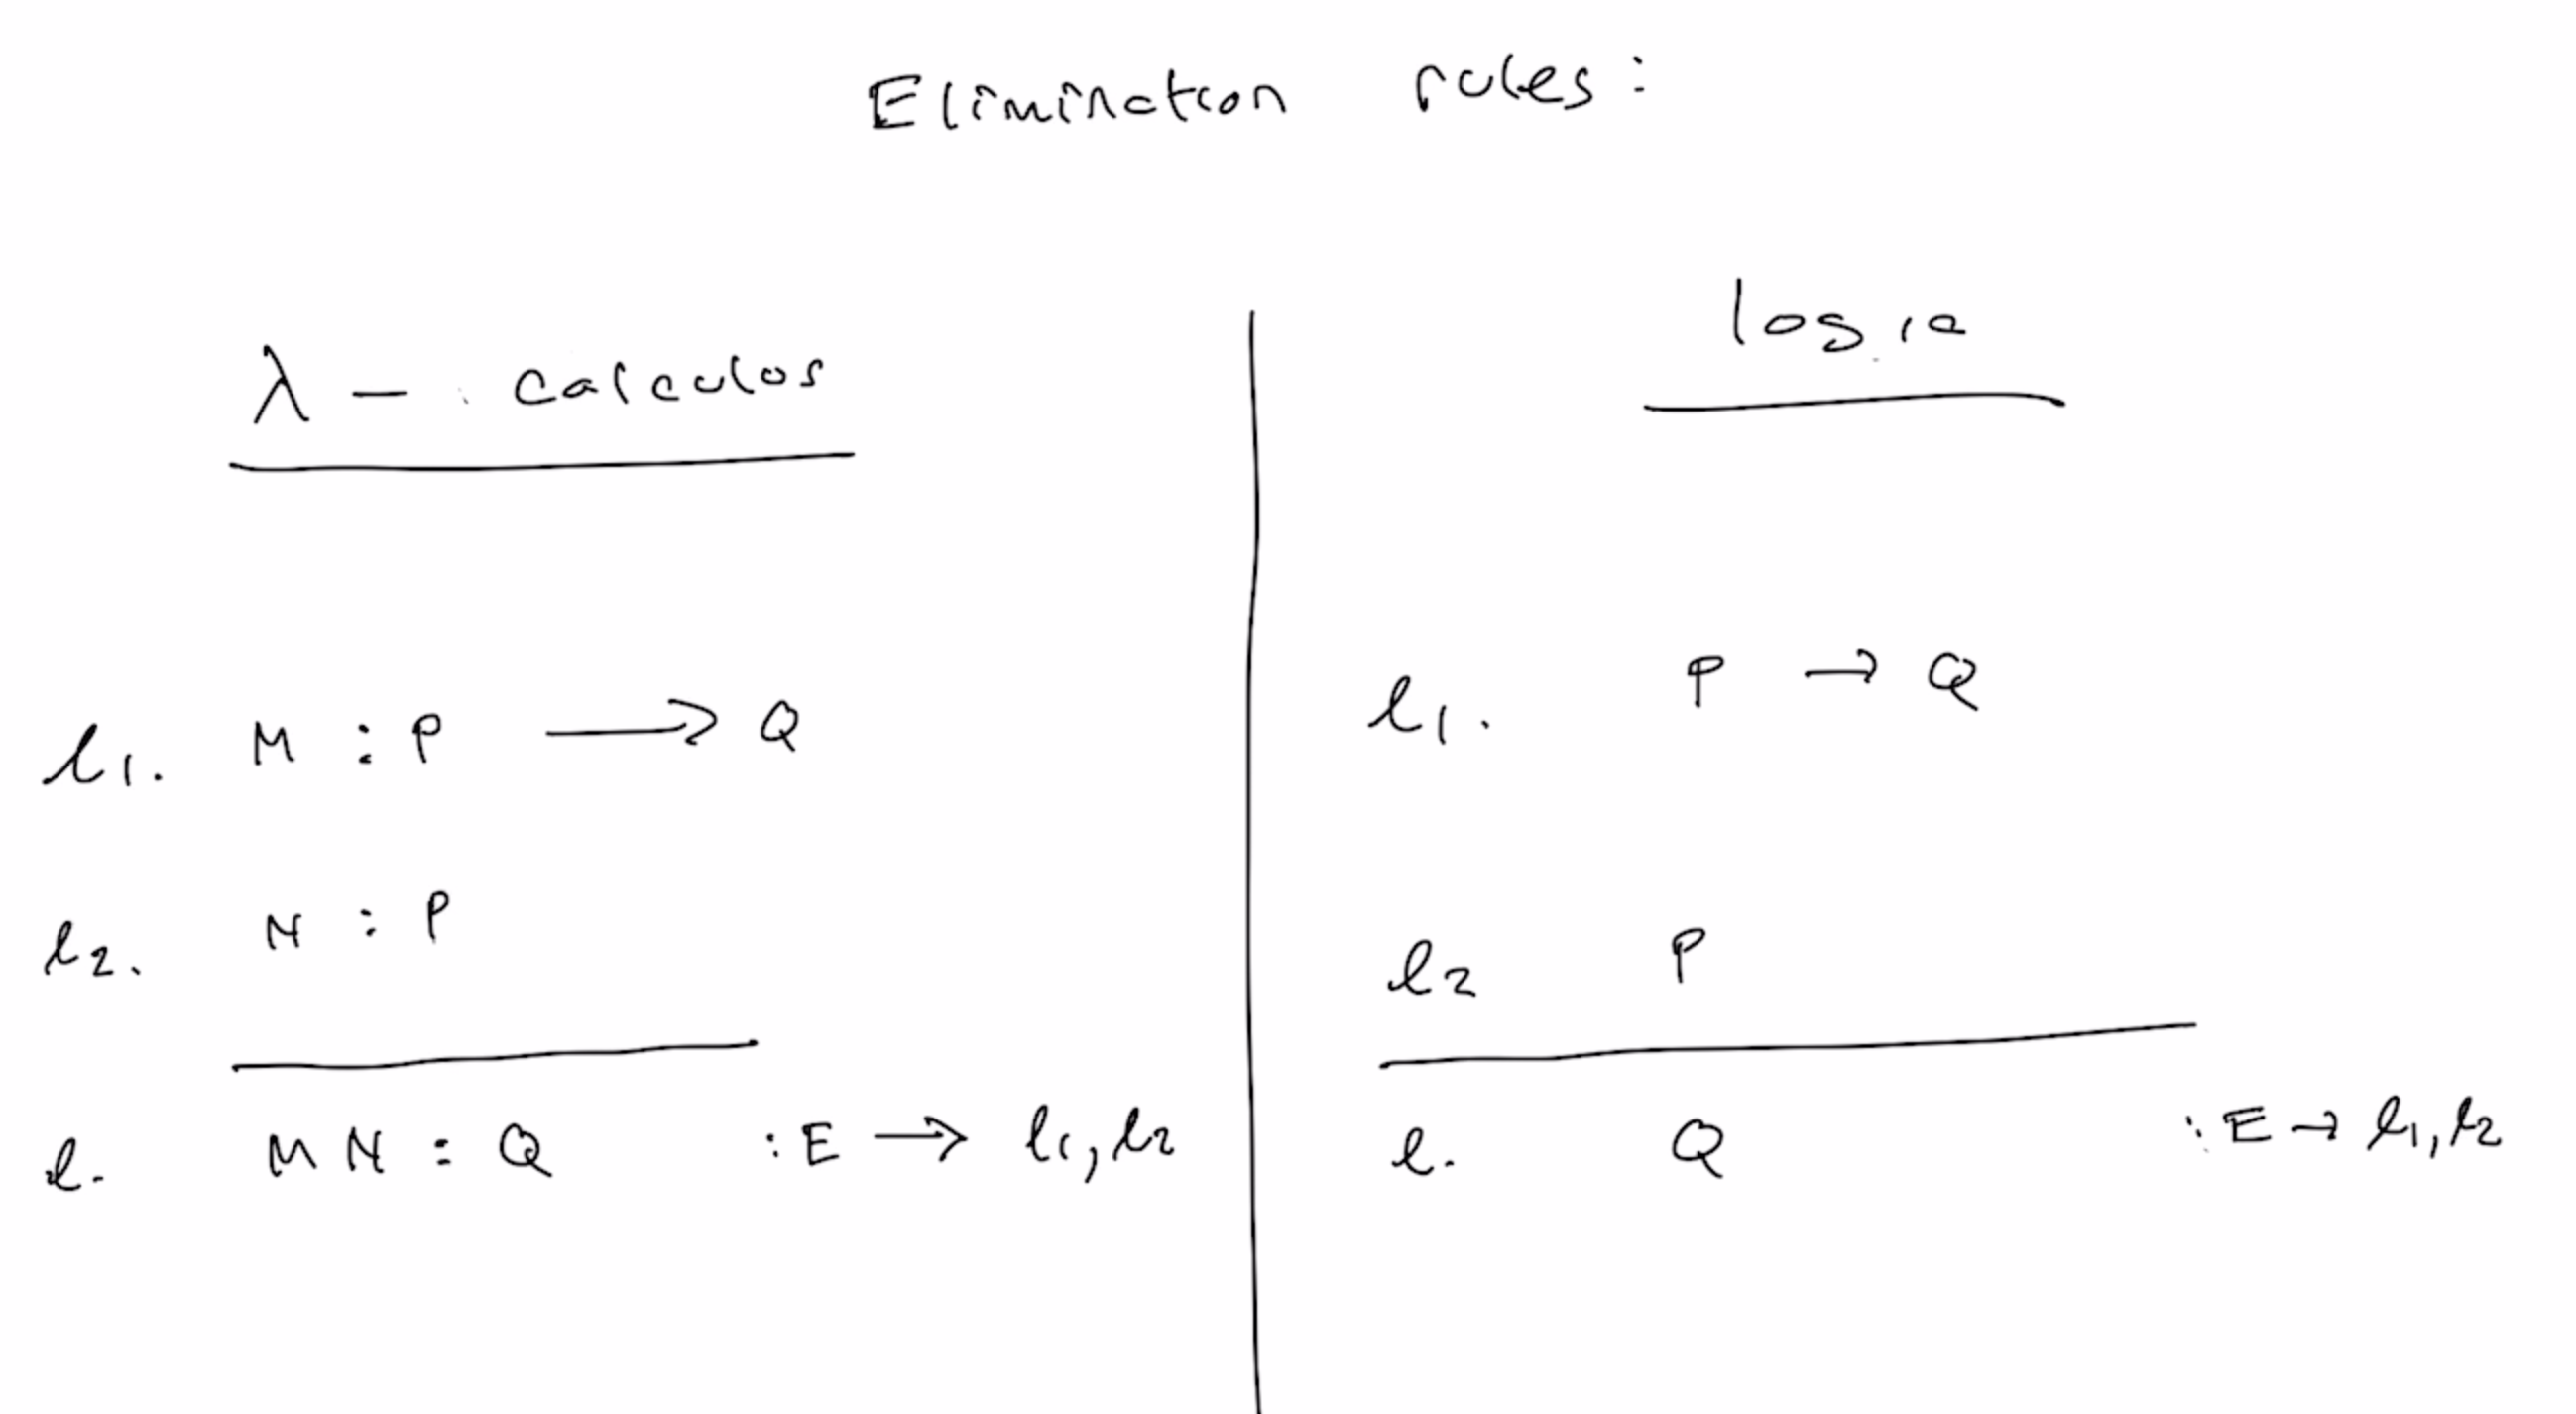 Elimination rules:
λ - calculus
l₁. M : P ⟶ Q
l₂. N : P
l. M N : Q :E ⟶ l₁, l₂
logic
l₁. P → Q
l₂ P
l. Q :E → l₁, l₂